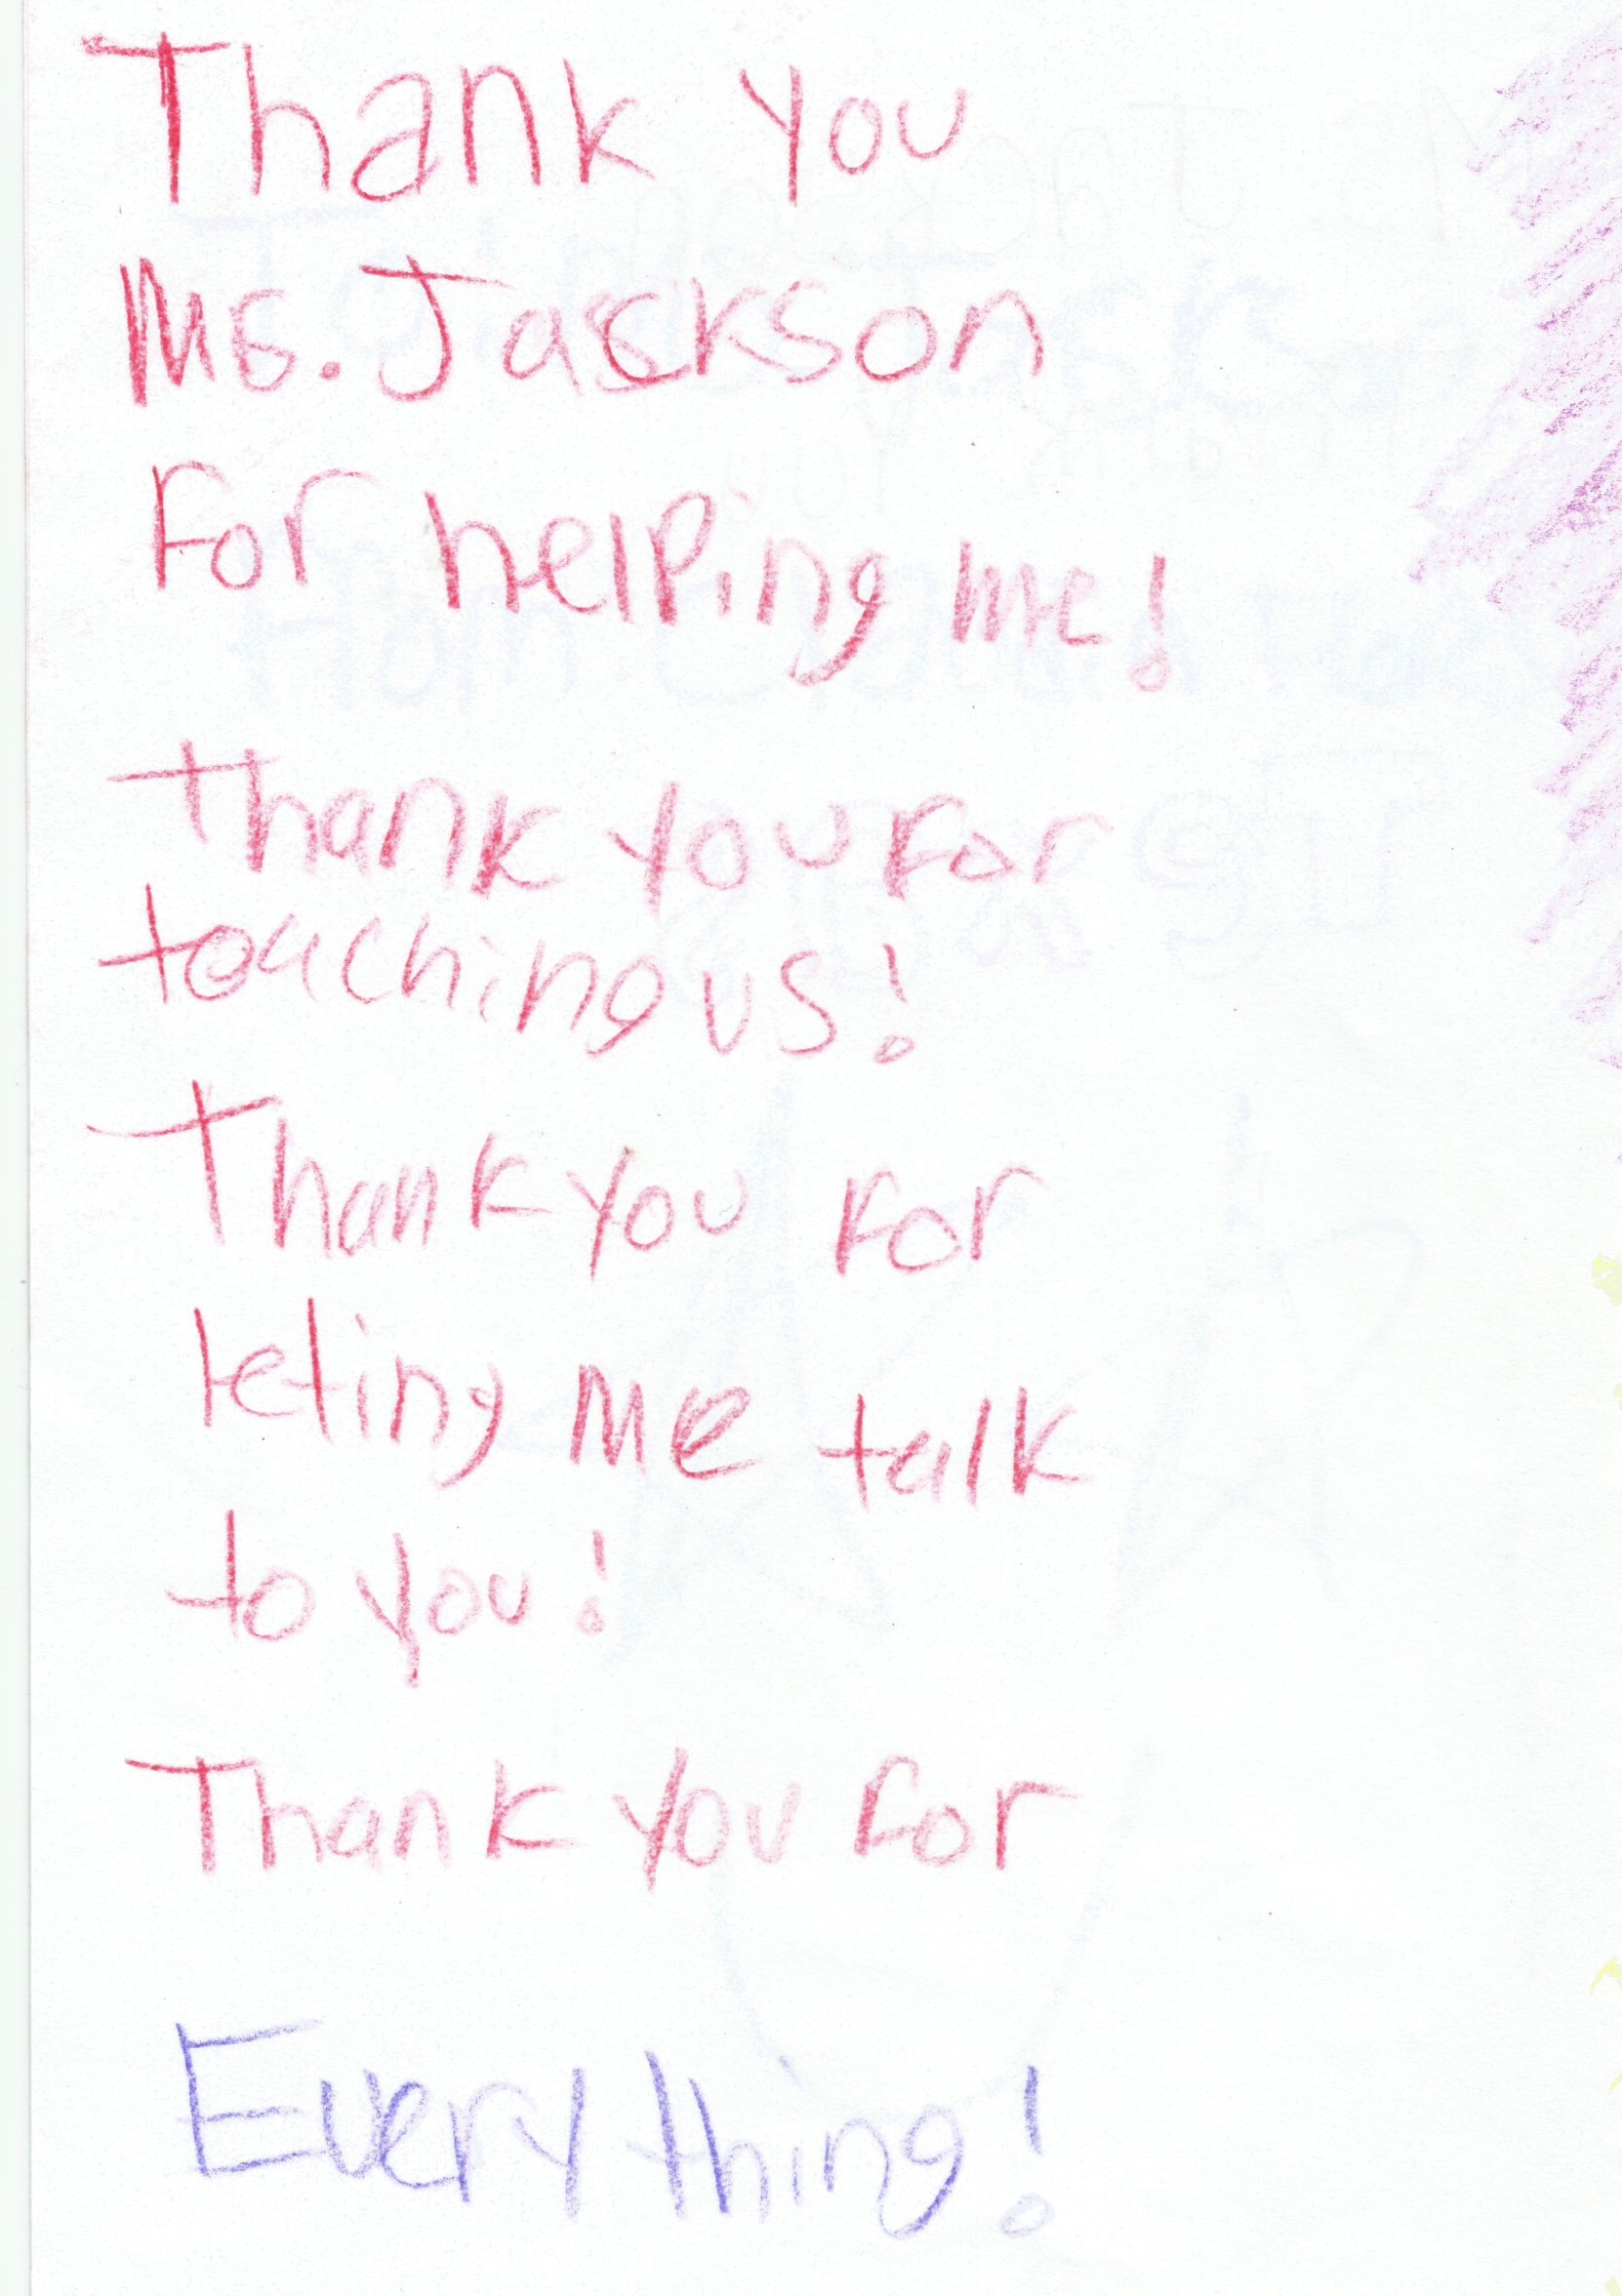 Thank you
Ms. Jackson
For helping me!
Thank you For
teaching us!
Thank you For
leting me talk
to you!
Thank you For
Everything!